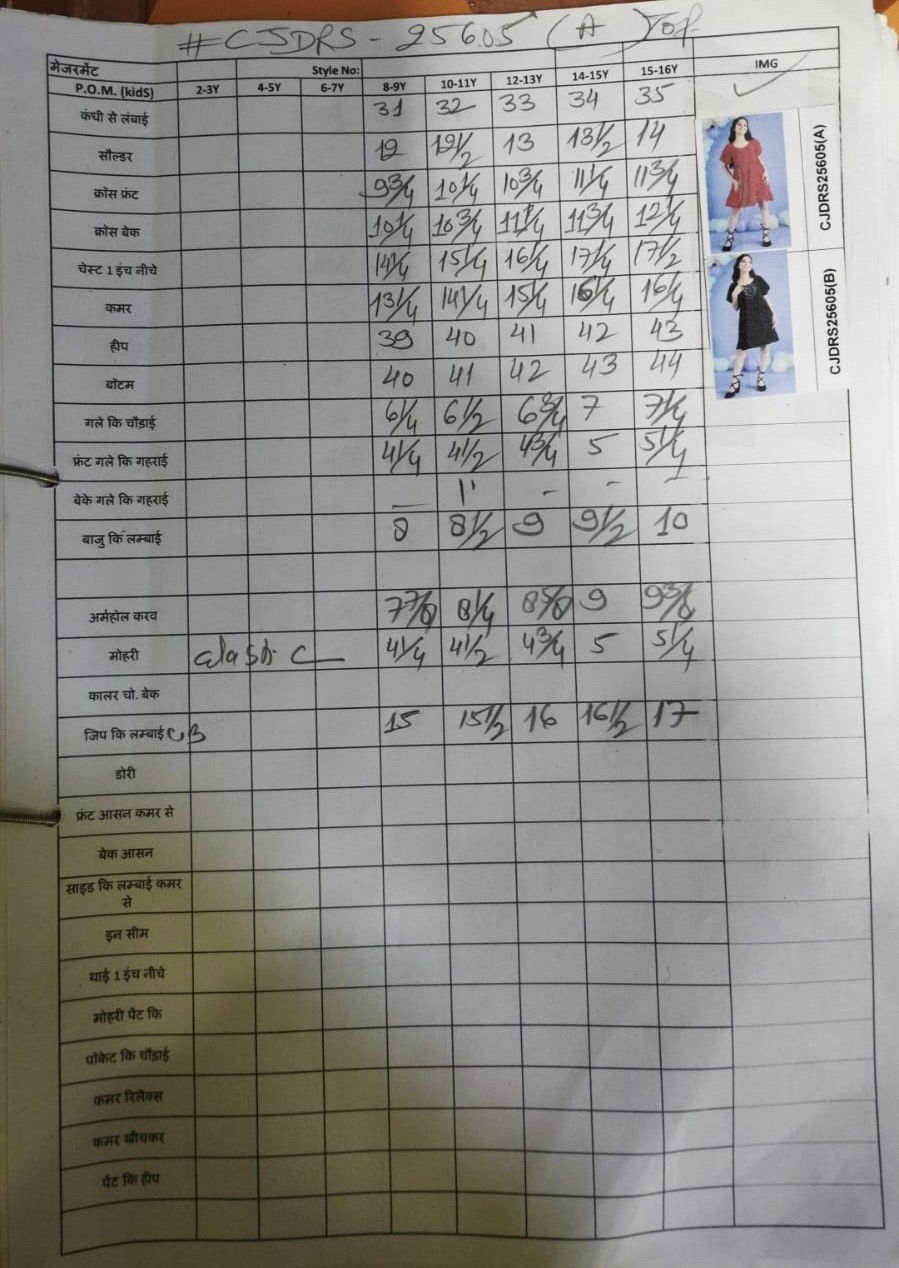 #CJDRS - 25605 (A) Top
मेजरमेंट Style No: IMG
P.O.M. (kidS) 2-3Y 4-5Y 6-7Y 8-9Y 10-11Y 12-13Y 14-15Y 15-16Y
कंधी से लंबाई 31 32 33 34 35
सौल्डर 12 12 1/2 13 13 1/2 14
क्रोस फ्रंट 9 3/4 10 1/4 10 3/4 11 1/4 11 3/4
क्रोस बेक 10 1/4 10 3/4 11 1/4 11 3/4 12 1/4
चेस्ट 1 इंच नीचे 14 1/4 15 1/4 16 1/4 17 1/4 17 1/2
कमर 13 1/4 14 1/4 15 1/4 16 1/4 16 1/4
हीप 39 40 41 42 43
बॉटम 40 41 42 43 44
गले कि चौड़ाई 6 1/4 6 1/2 6 3/4 7 7 1/4
फ्रंट गले कि गहराई 4 1/4 4 1/2 4 3/4 5 5 1/4
बेके गले कि गहराई - 1" - - -
बाजु कि लम्बाई 8 8 1/2 9 9 1/2 10
अर्महोल करव 7 7/8 8 1/4 8 5/8 9 9 3/8
मोहरी elastic 4 1/4 4 1/2 4 3/4 5 5 1/4
कालर चो. बेक
जिप कि लम्बाई CB 15 15 1/2 16 16 1/2 17
डोरी
फ्रंट आसन कमर से
बेक आसन
साइड कि लम्बाई कमर
से
इन सीम
थाई 1 इंच नीचे
मोहरी पेंट कि
पॉकेट कि चौड़ाई
कमर रिलैक्स
कमर खीचकर
पेंट कि हीप
CJDRS25605(A)
CJDRS25605(B)